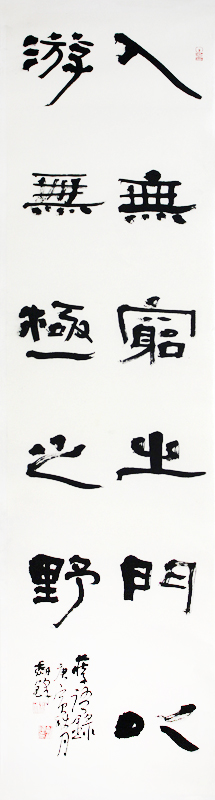 入無窮之門以
游無極之野